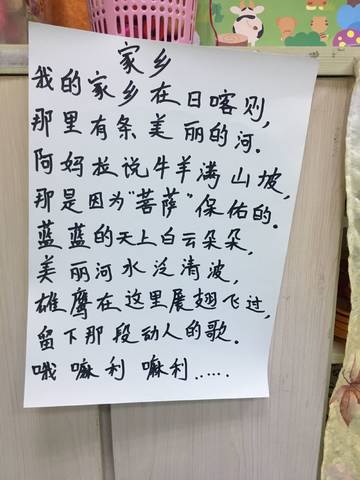 家乡
我的家乡在日喀则,
那里有条美丽的河.
阿妈拉说牛羊满山坡,
那是因为"菩萨"保佑的.
蓝蓝的天上白云朵朵,
美丽河水泛清波,
雄鹰在这里展翅飞过,
留下那段动人的歌.
哦嘛利嘛利……